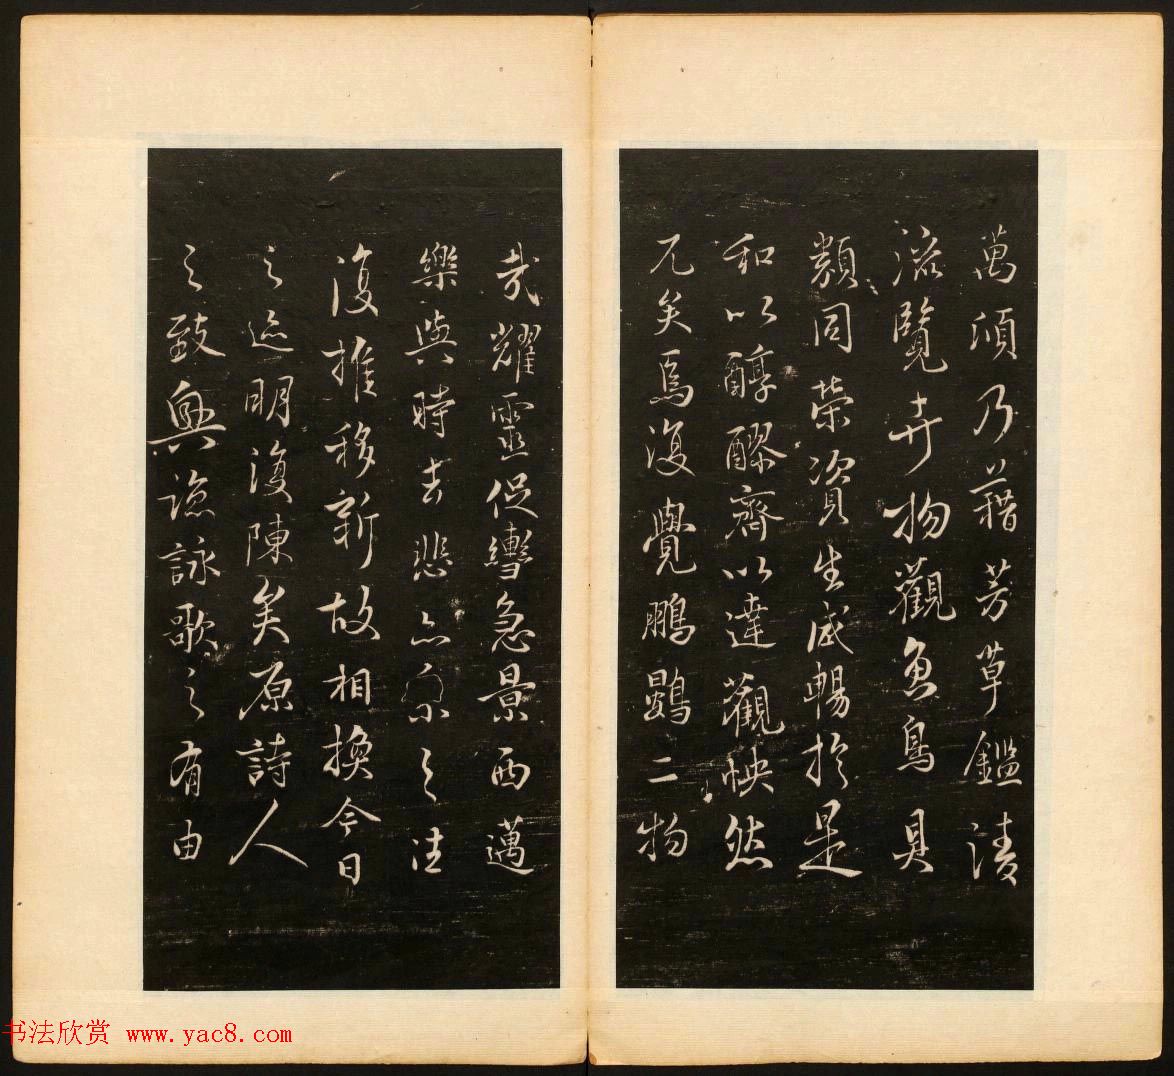 萬頃乃藉芳草鑑清
流覽卉物觀魚鳥具
類同榮資生咸暢於是
和以醇醪齊以達觀怏然
兀矣焉復覺鵬鷃二物
哉耀靈促轡急景西邁
樂與時去悲亦系之往
復推移新故相換今日
之迹明復陳矣原詩人
之致興諒詠歌之有由
书法欣赏 www.yac8.com